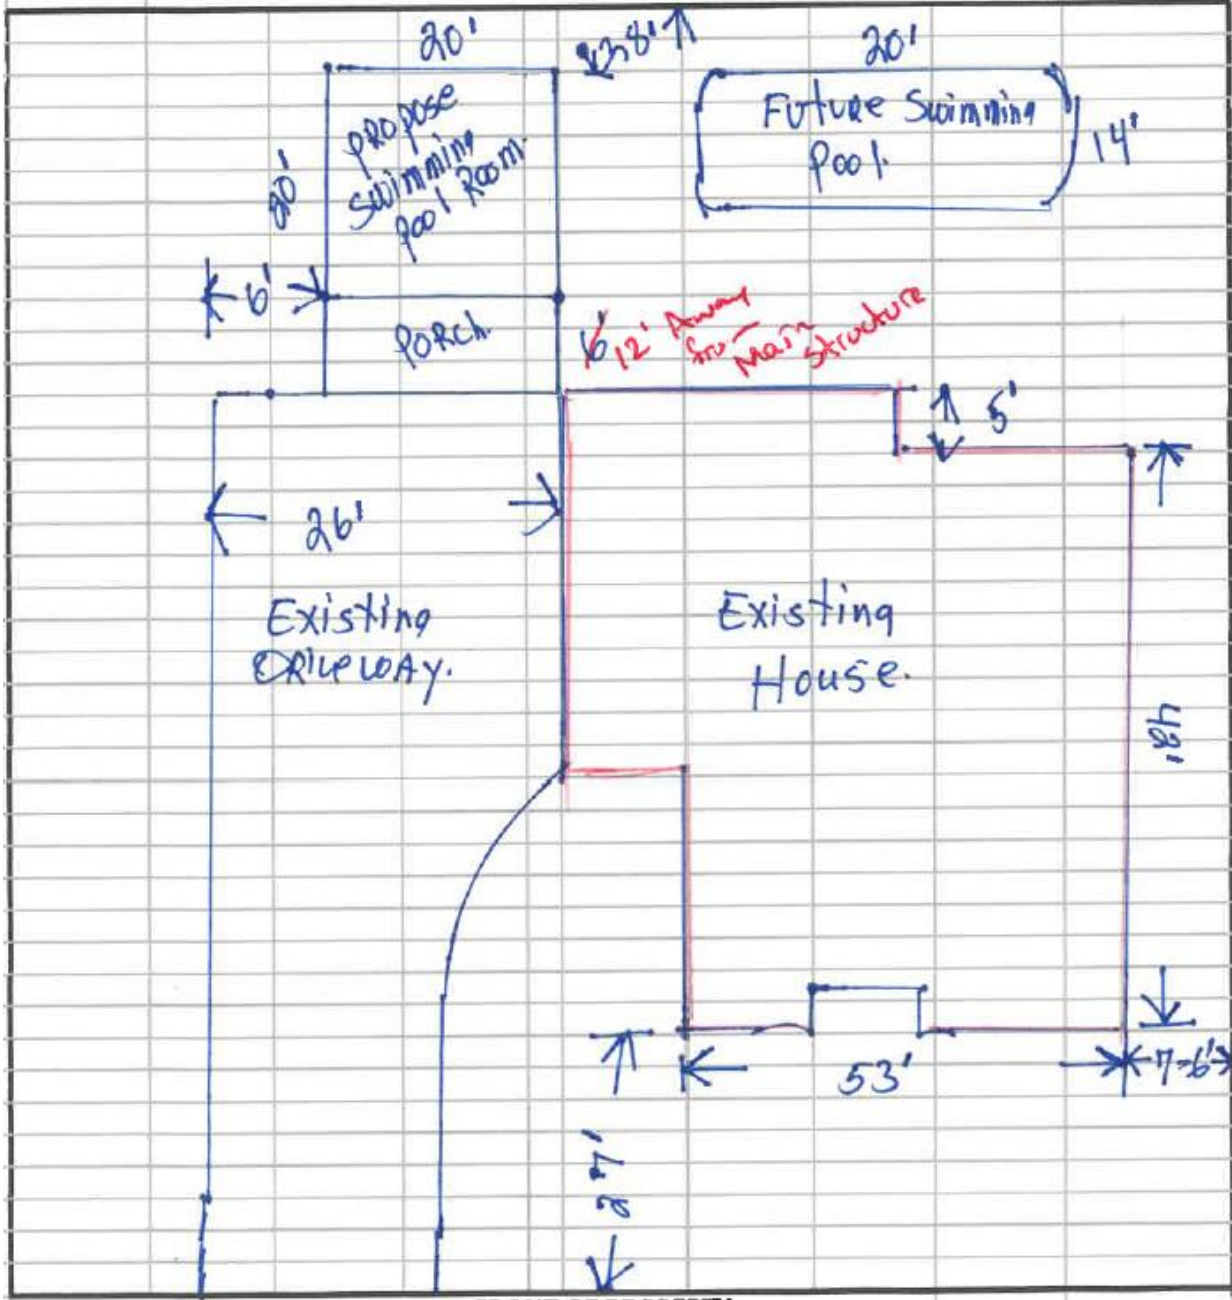 20'
38'
20'
PROPOSE
SWIMMING
Pool Room.
20'
Future Swimming
Pool.
14'
6'
PORCH.
6'
12' Away
from
Main
Structure
5'
26'
Existing
DRIVEWAY.
Existing
House.
48'
53'
7-6'
27'